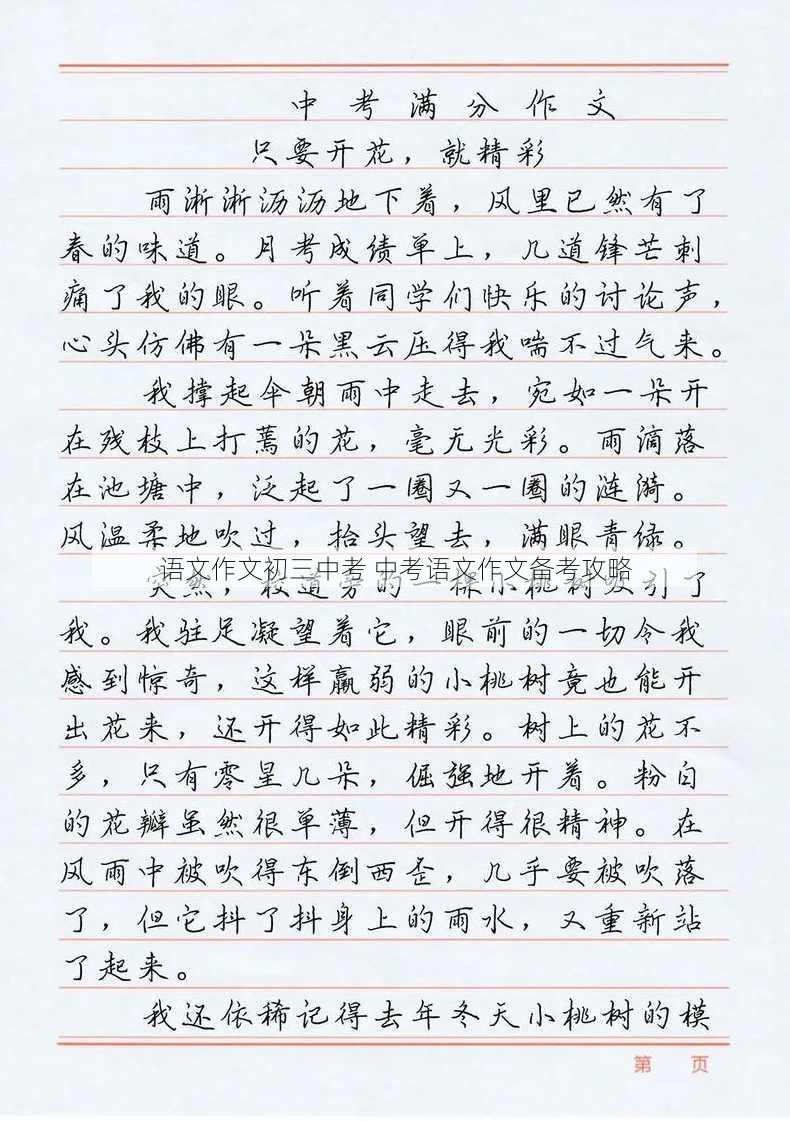 中考满分作文
只要开花，就精彩
雨淅淅沥沥地下着，风里已然有了
春的味道。月考成绩单上，几道锋芒刺
痛了我的眼。听着同学们快乐的讨论声，
心头仿佛有一朵黑云压得我喘不过气来。
我撑起伞朝雨中走去，宛如一朵开
在残枝上打蔫的花，毫无光彩。雨滴落
在池塘中，泛起了一圈又一圈的涟漪。
风温柔地吹过，抬头望去，满眼青绿。
语文作文初三中考 中考语文作文备考攻略
突然，校道旁的一棵小桃树吸引了
我。我驻足凝望着它，眼前的一切令我
感到惊奇，这样羸弱的小桃树竟也能开
出花来，还开得如此精彩。树上的花不
多，只有零星几朵，倔强地开着。粉白
的花瓣虽然很单薄，但开得很精神。在
风雨中被吹得东倒西歪，几乎要被吹落
了，但它抖了抖身上的雨水，又重新站
了起来。
我还依稀记得去年冬天小桃树的模
第 页